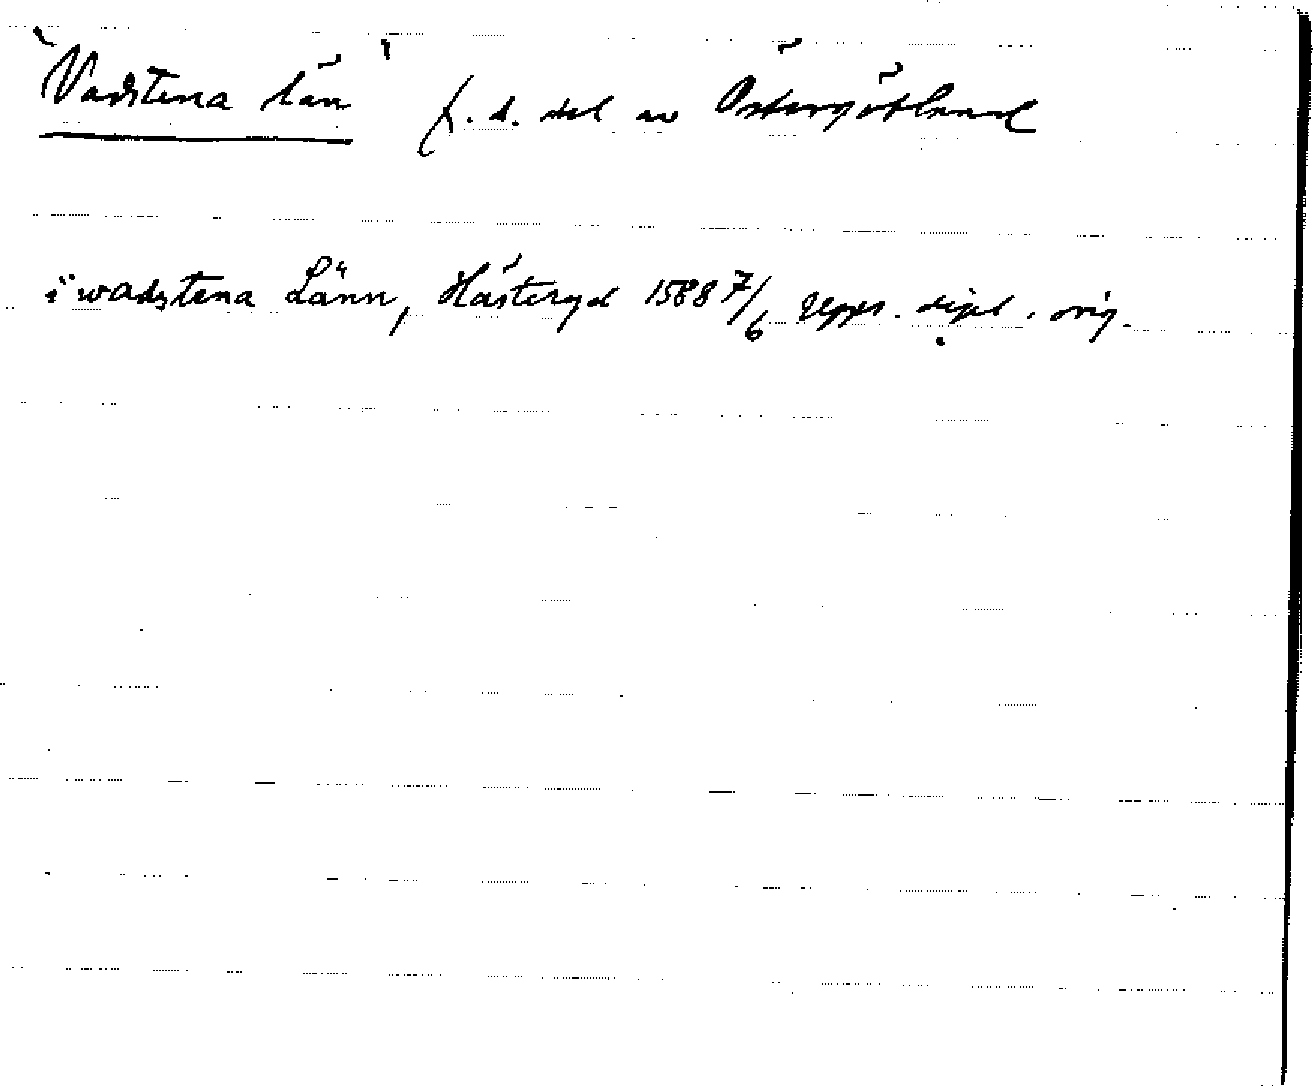 "Vadstena län" f. d. del av Östergötland
i wadztena Länn, Hästeryd 1588 7/6 Upps. dipl. orig.